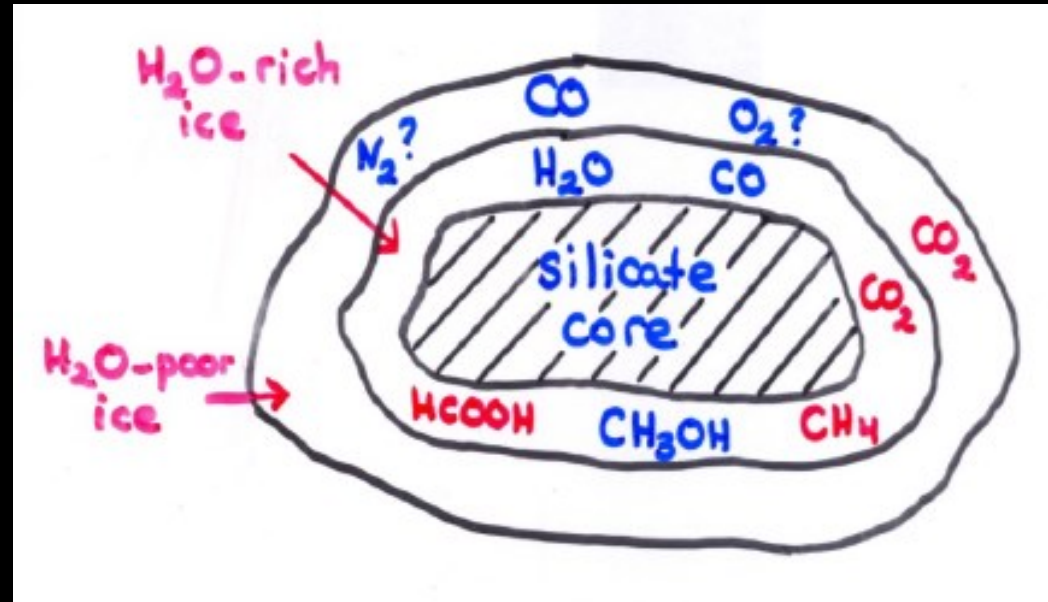 H₂O-rich
ice
CO
N₂?
O₂?
H₂O
CO
CO₂
silicate
core
CO₂
H₂O-poor
ice
HCOOH
CH₃OH
CH₄